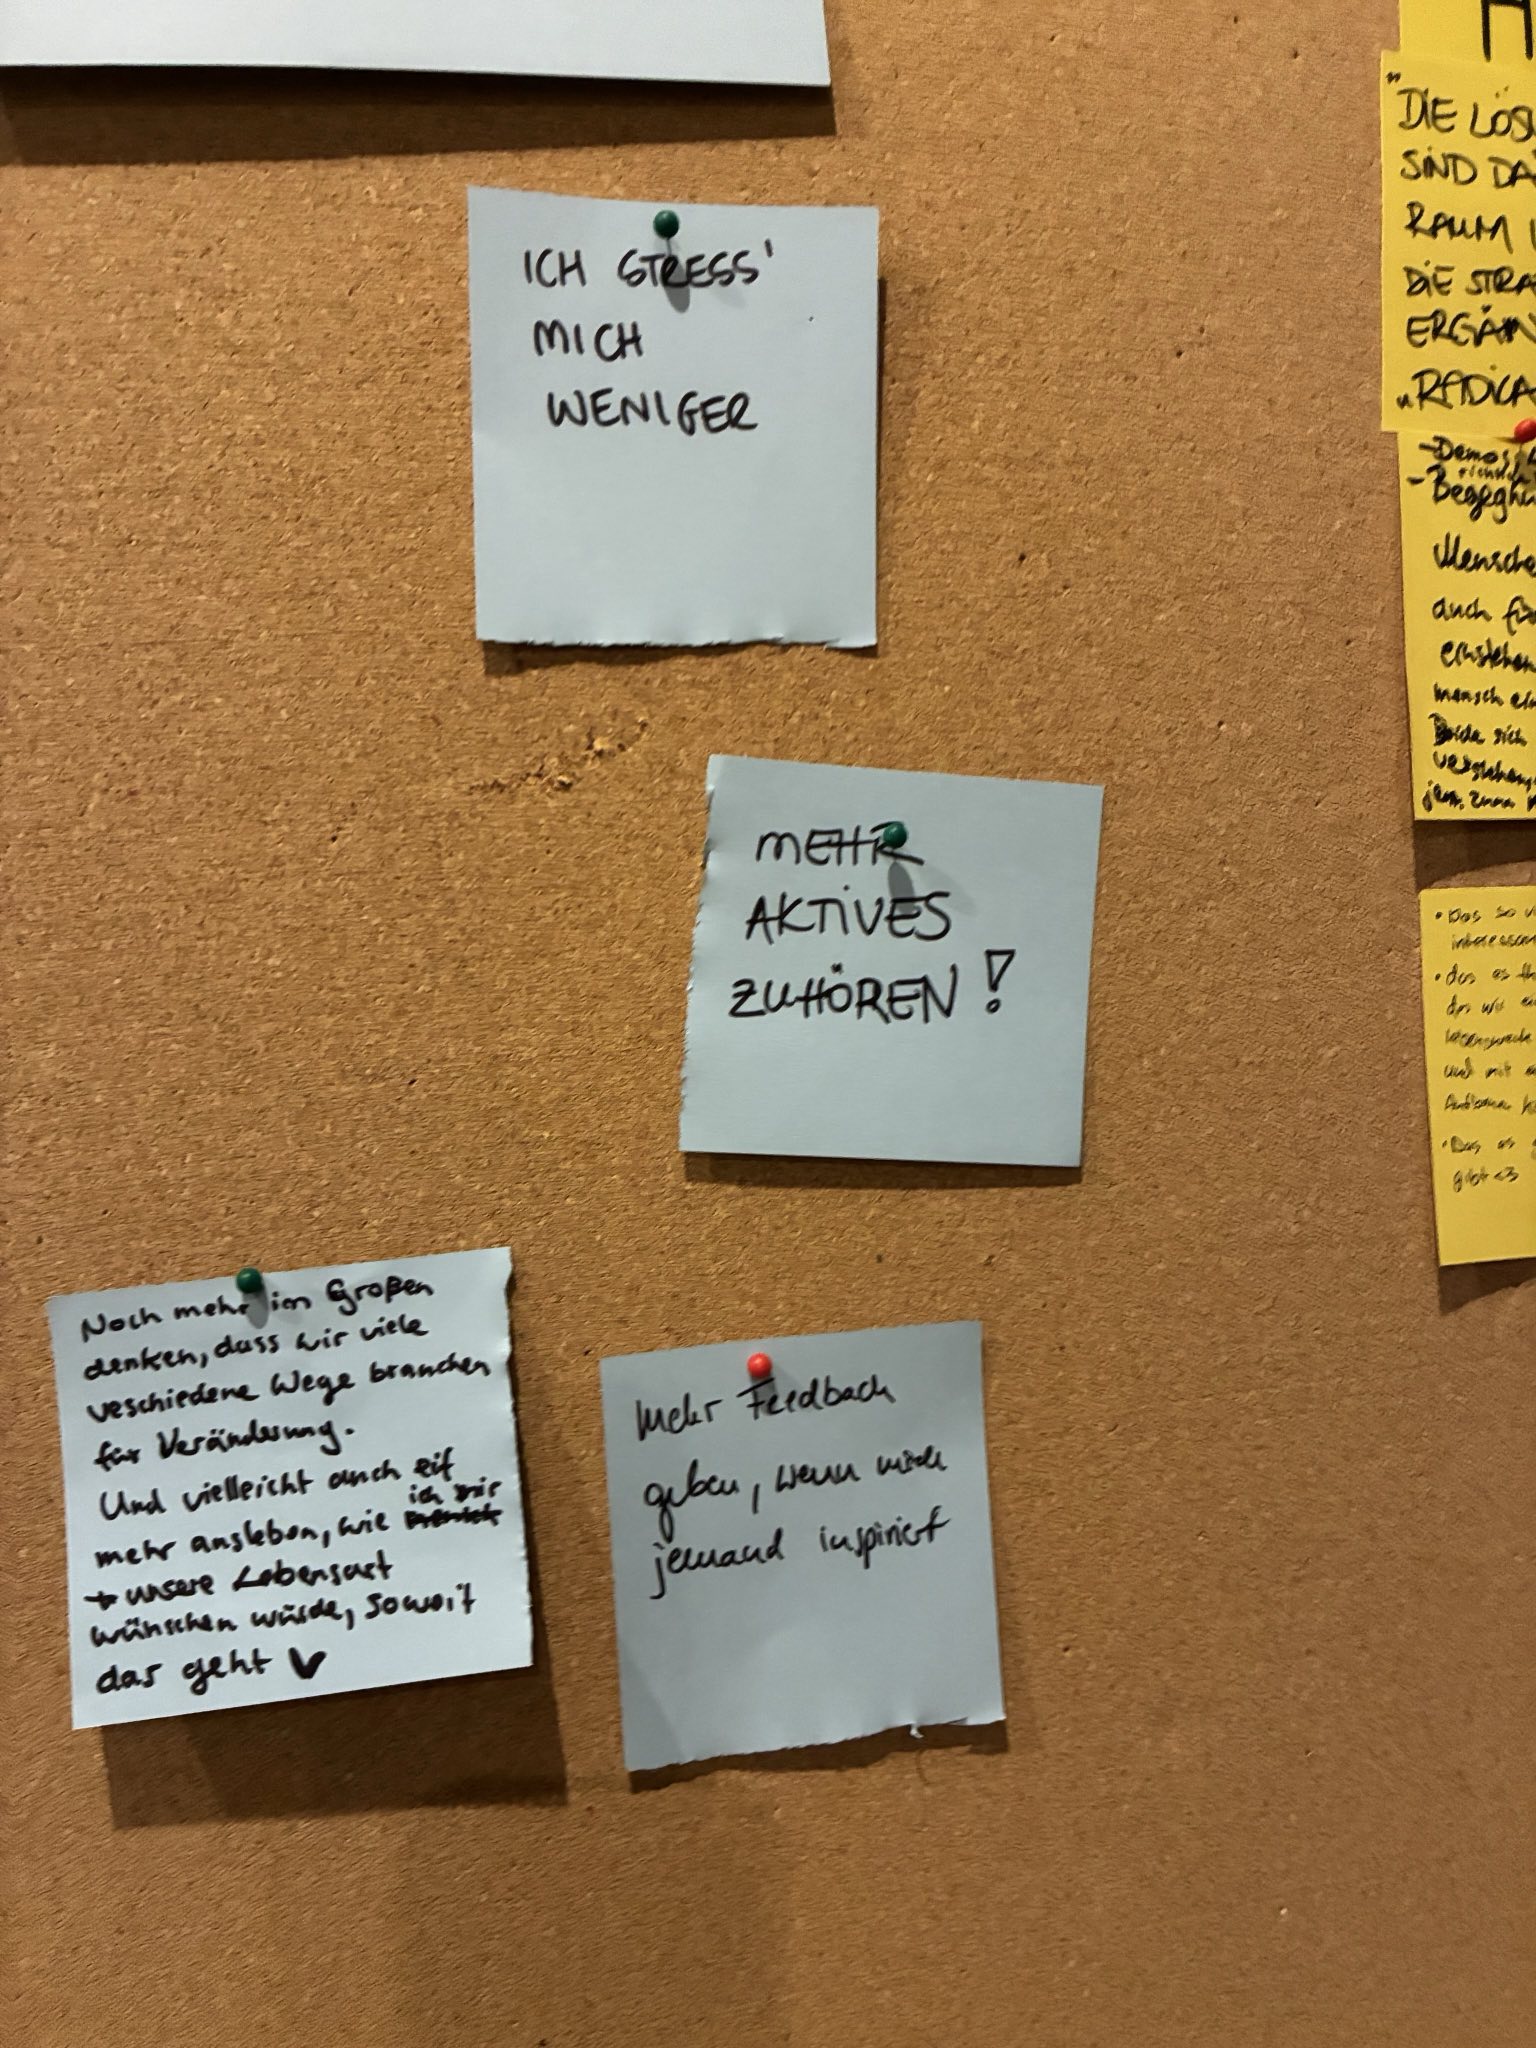 ICH STRESS'
MICH
WENIGER
MEHR
AKTIVES
ZUHÖREN!
Noch mehr im Großen
denken, dass wir viele
veschiedene Wege brauchen
für Veränderung.
Und vielleicht auch
mehr ausleben, wie ich mir
unsere Lebensart
wünschen würde, soweit
das geht
Mehr Feedback
geben, wenn mich
jemand inspiriert
H
"DIE LÖS
SIND DA
RAUM
DIE STRA
ERGÄN
"RADICA
-Demos
-Begegn
Mensche
auch für
entstehen
mensch ein
sich
verstehen
• Das so v
interessan
• das es
das wir
und mit
• Das es g
gibt <3